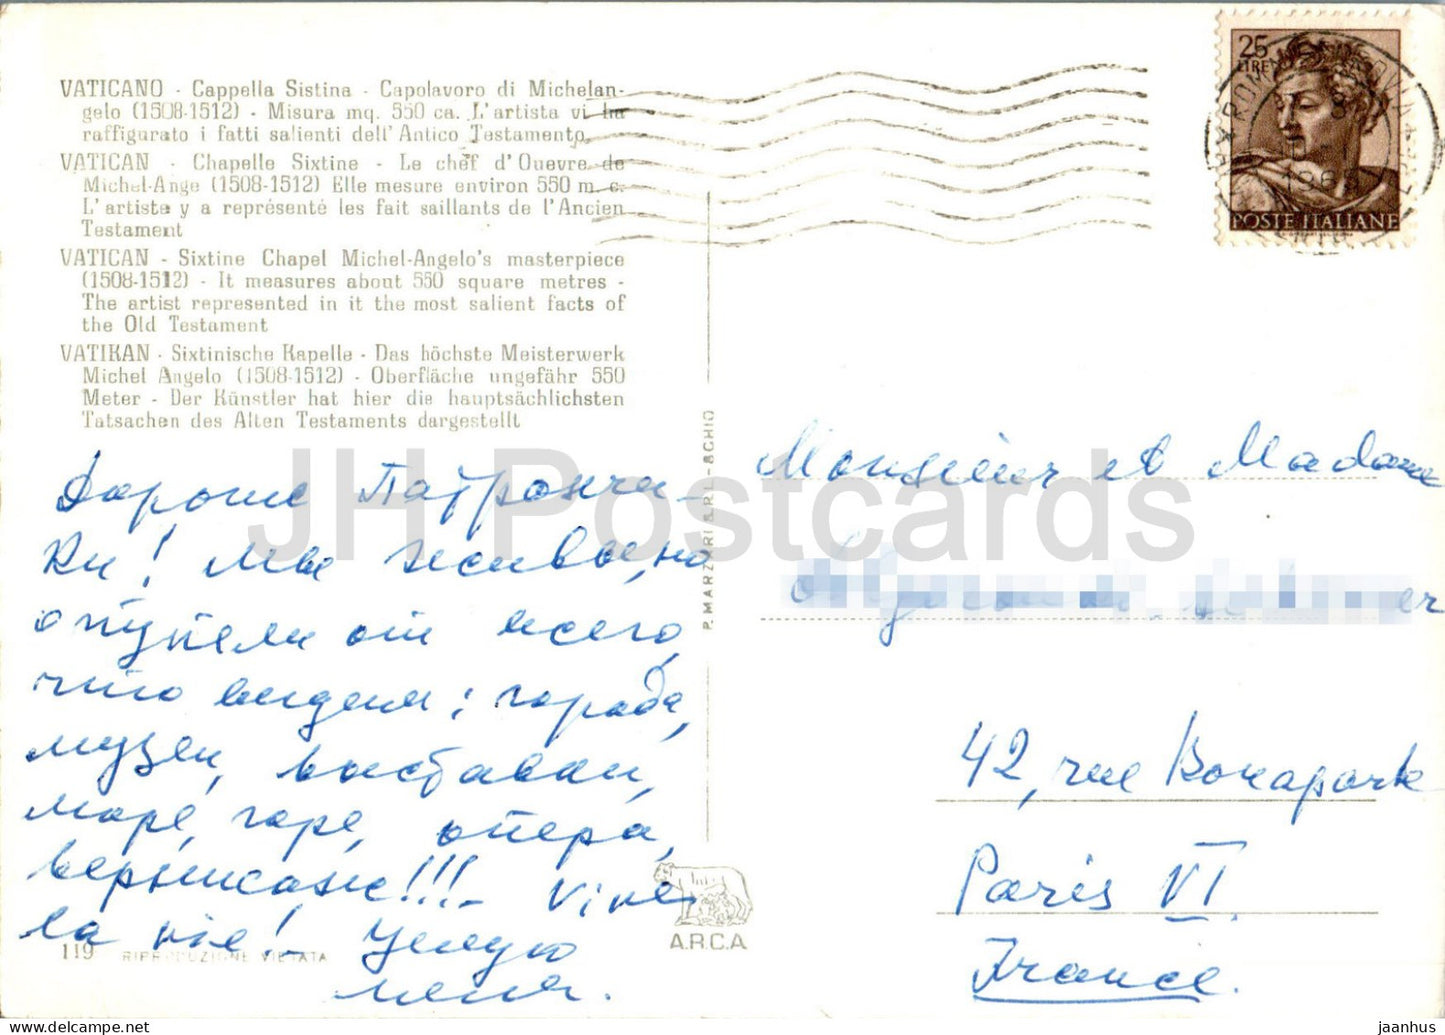 VATICANO - Cappella Sistina - Capolavoro di Michelan-
gelo (1508-1512) - Misura mq. 550 ca. L'artista vi ha
raffigurato i fatti salienti dell'Antico Testamento.
VATICAN - Chapelle Sixtine - Le chef d'Ouevre de
Michel-Ange (1508-1512) Elle mesure environ 550 m. c.
L'artiste y a représenté les fait saillants de l'Ancien
Testament
VATICAN - Sixtine Chapel Michel-Angelo's masterpiece
(1508-1512) - It measures about 550 square metres -
The artist represented in it the most salient facts of
the Old Testament
VATIKAN - Sixtinische Kapelle - Das höchste Meisterwerk
Michel Angelo (1508-1512) - Oberfläche ungefähr 550
Meter - Der Künstler hat hier die hauptsächlichsten
Tatsachen des Alten Testaments dargestellt
Дорогие Патрончи-
ки! Мы живы, но
отупели от всего,
что видели: города,
музеи, выставки,
море, горе, опера,
вернисаж!!!- Vive
la vie!- Целую
119 RIPRODUZIONE VIETATA
P. MARZARI S.R.L. - SCHIO
A.R.C.A
25
LIRE
POSTE ITALIANE
Monsieur et Madame
42, rue Bonaparte
Paris VI.
France.
JH Postcards
jaanhus - delcampe.net